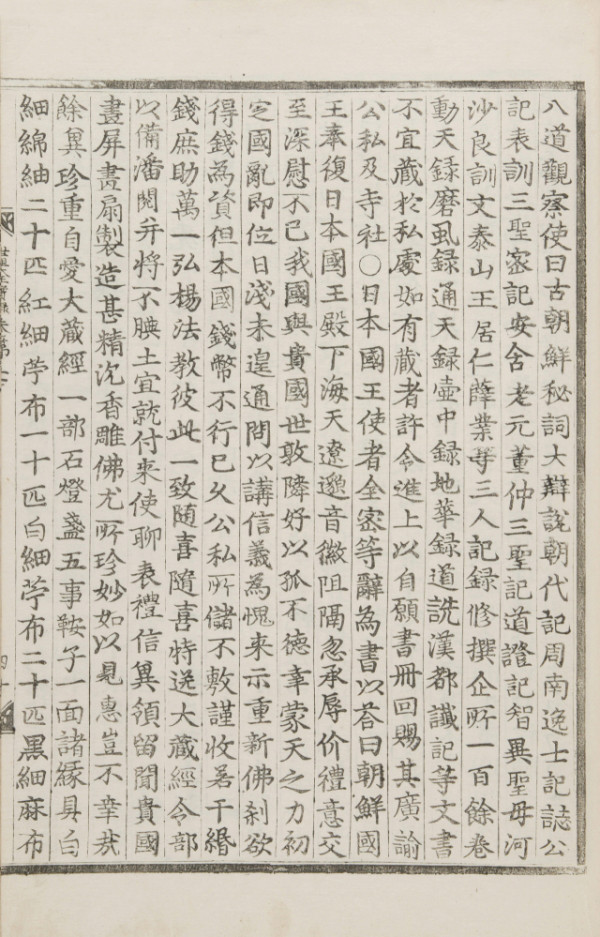 八道觀察使曰古朝鮮秘詞大辯說朝代記周南逸士記誌公
記表訓三聖密記安含老元董仲三聖記道證記智異聖母河
沙良訓文泰山王居仁薛業等三人記録修撰企所一百餘卷
動天録磨虱録通天録壺中録地華録道詵漢都讖記等文書
不宜蔵於私處如有蔵者許令進上以自願書冊回賜其廣諭
公私及寺社○日本國王使者全密等辭為書以荅曰朝鮮國
王奉復日本國王殿下海天遼邈音徽阻隔忽承辱价禮意交
至深慰不已我國與貴國世敦隣好以孤不德幸蒙天之力初
定國亂即位日淺未遑通問以講信義為愧来示重新佛刹欲
得錢為資但本國錢幣不行已久公私所儲不敷謹收若干緡
錢庶助萬一弘楊法教彼此一致随喜隨喜特送大蔵經令部
以備潘閲并將不腆土宜就付来使聊表禮信兾領留聞貴國
畫屏畫扇製造甚精沈香雕佛尤所珍妙如以見惠豈不幸㦲
餘兾珍重自愛大蔵經一部石燈盞五事鞍子一面諸縁具白
細綿紬二十匹紅細苧布一十匹白細苧布二十匹黒細麻布